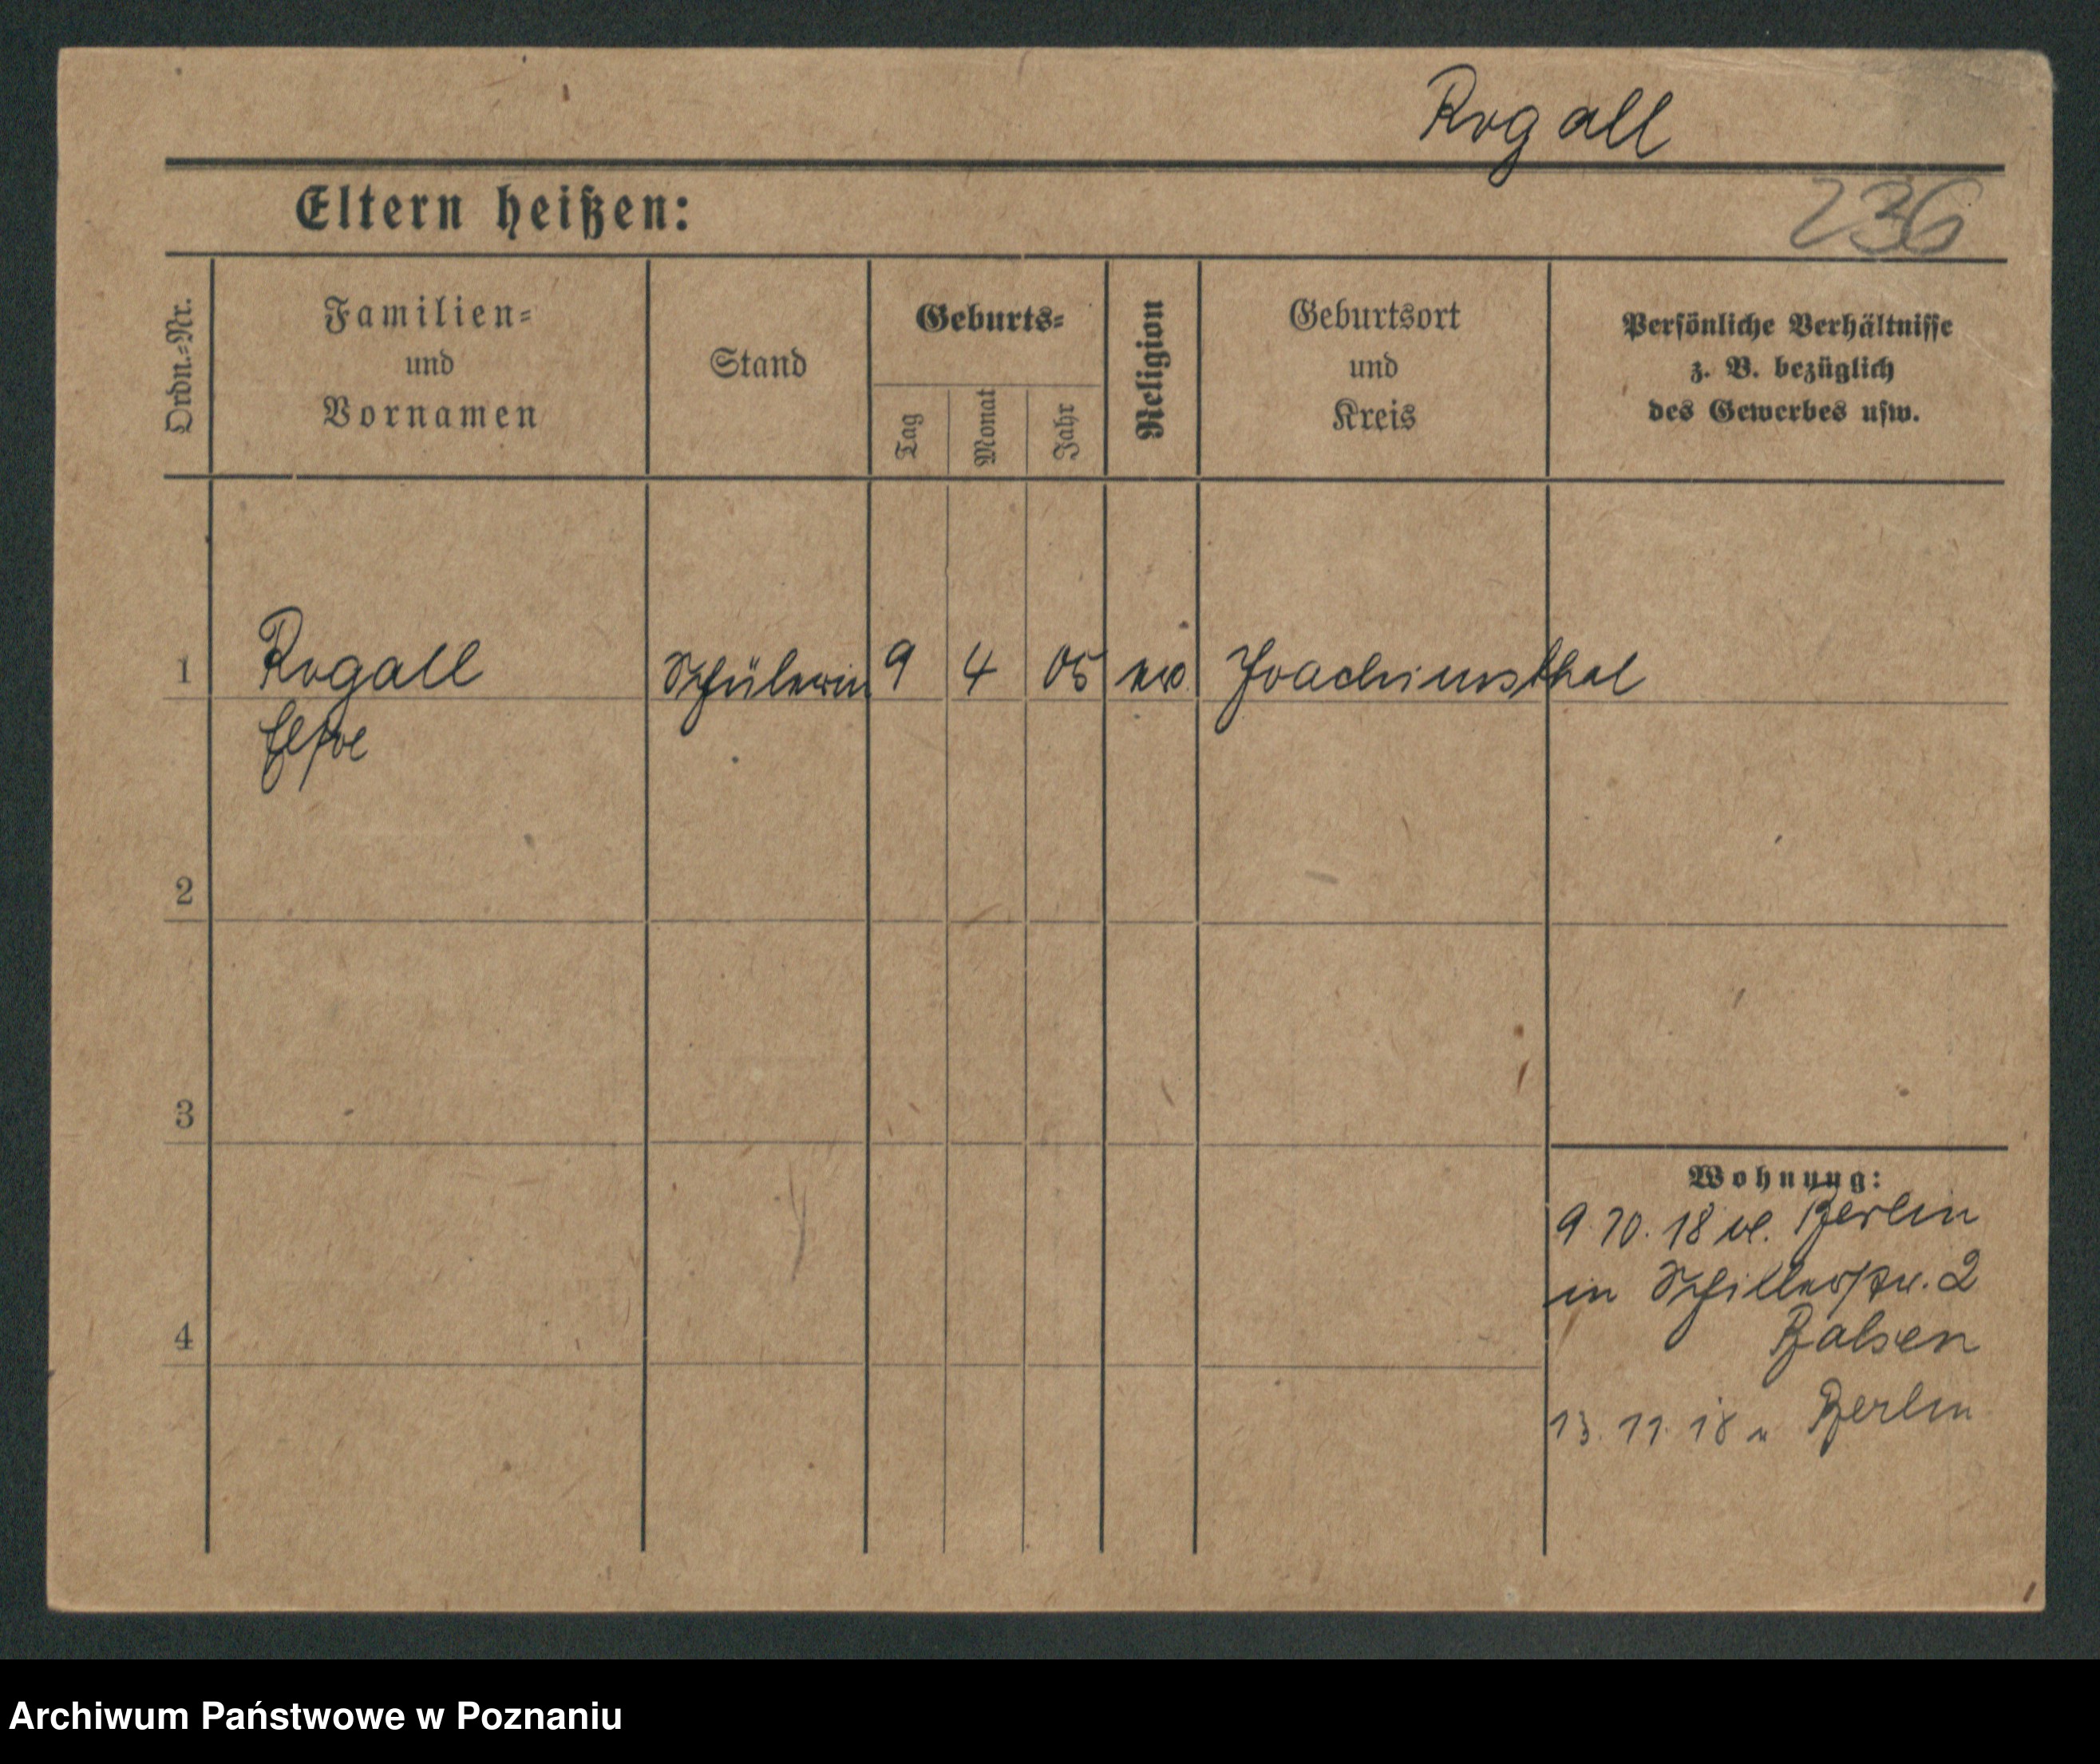 Rogall
Eltern heißen:
236
Ordn.-Nr.
Familien-
und
Vornamen
Stand
Geburts-
Tag
Monat
Jahr
Religion
Geburtsort
und
Kreis
Persönliche Verhältnisse
z. B. bezüglich
des Gewerbes usw.
1 Rogall Schülerin 9 4 05 ev. Joachimsthal
Else
2
3
4
Wohnung:
9 10. 18 Berlin
in Schillerstr. 2
13. 11. 18 n Berlin
Archiwum Państwowe w Poznaniu